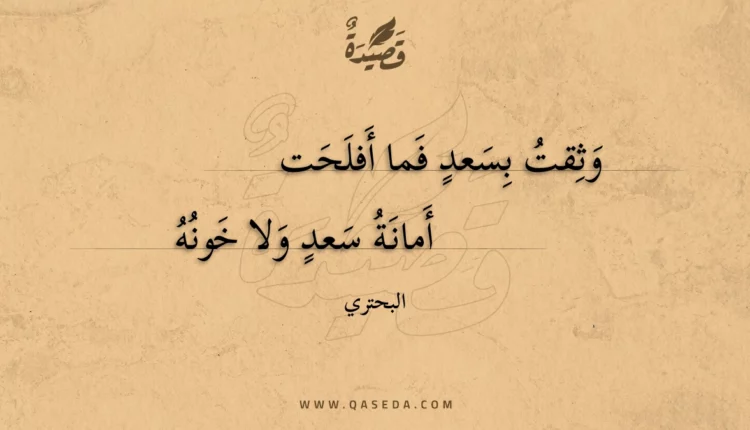 قَصِيدَةٌ
وَثِقتُ بِسَعدٍ فَما أَفلَحَت
أَمانَةُ سَعدٍ وَلا خَونُهُ
البحتري
WWW.QASEDA.COM